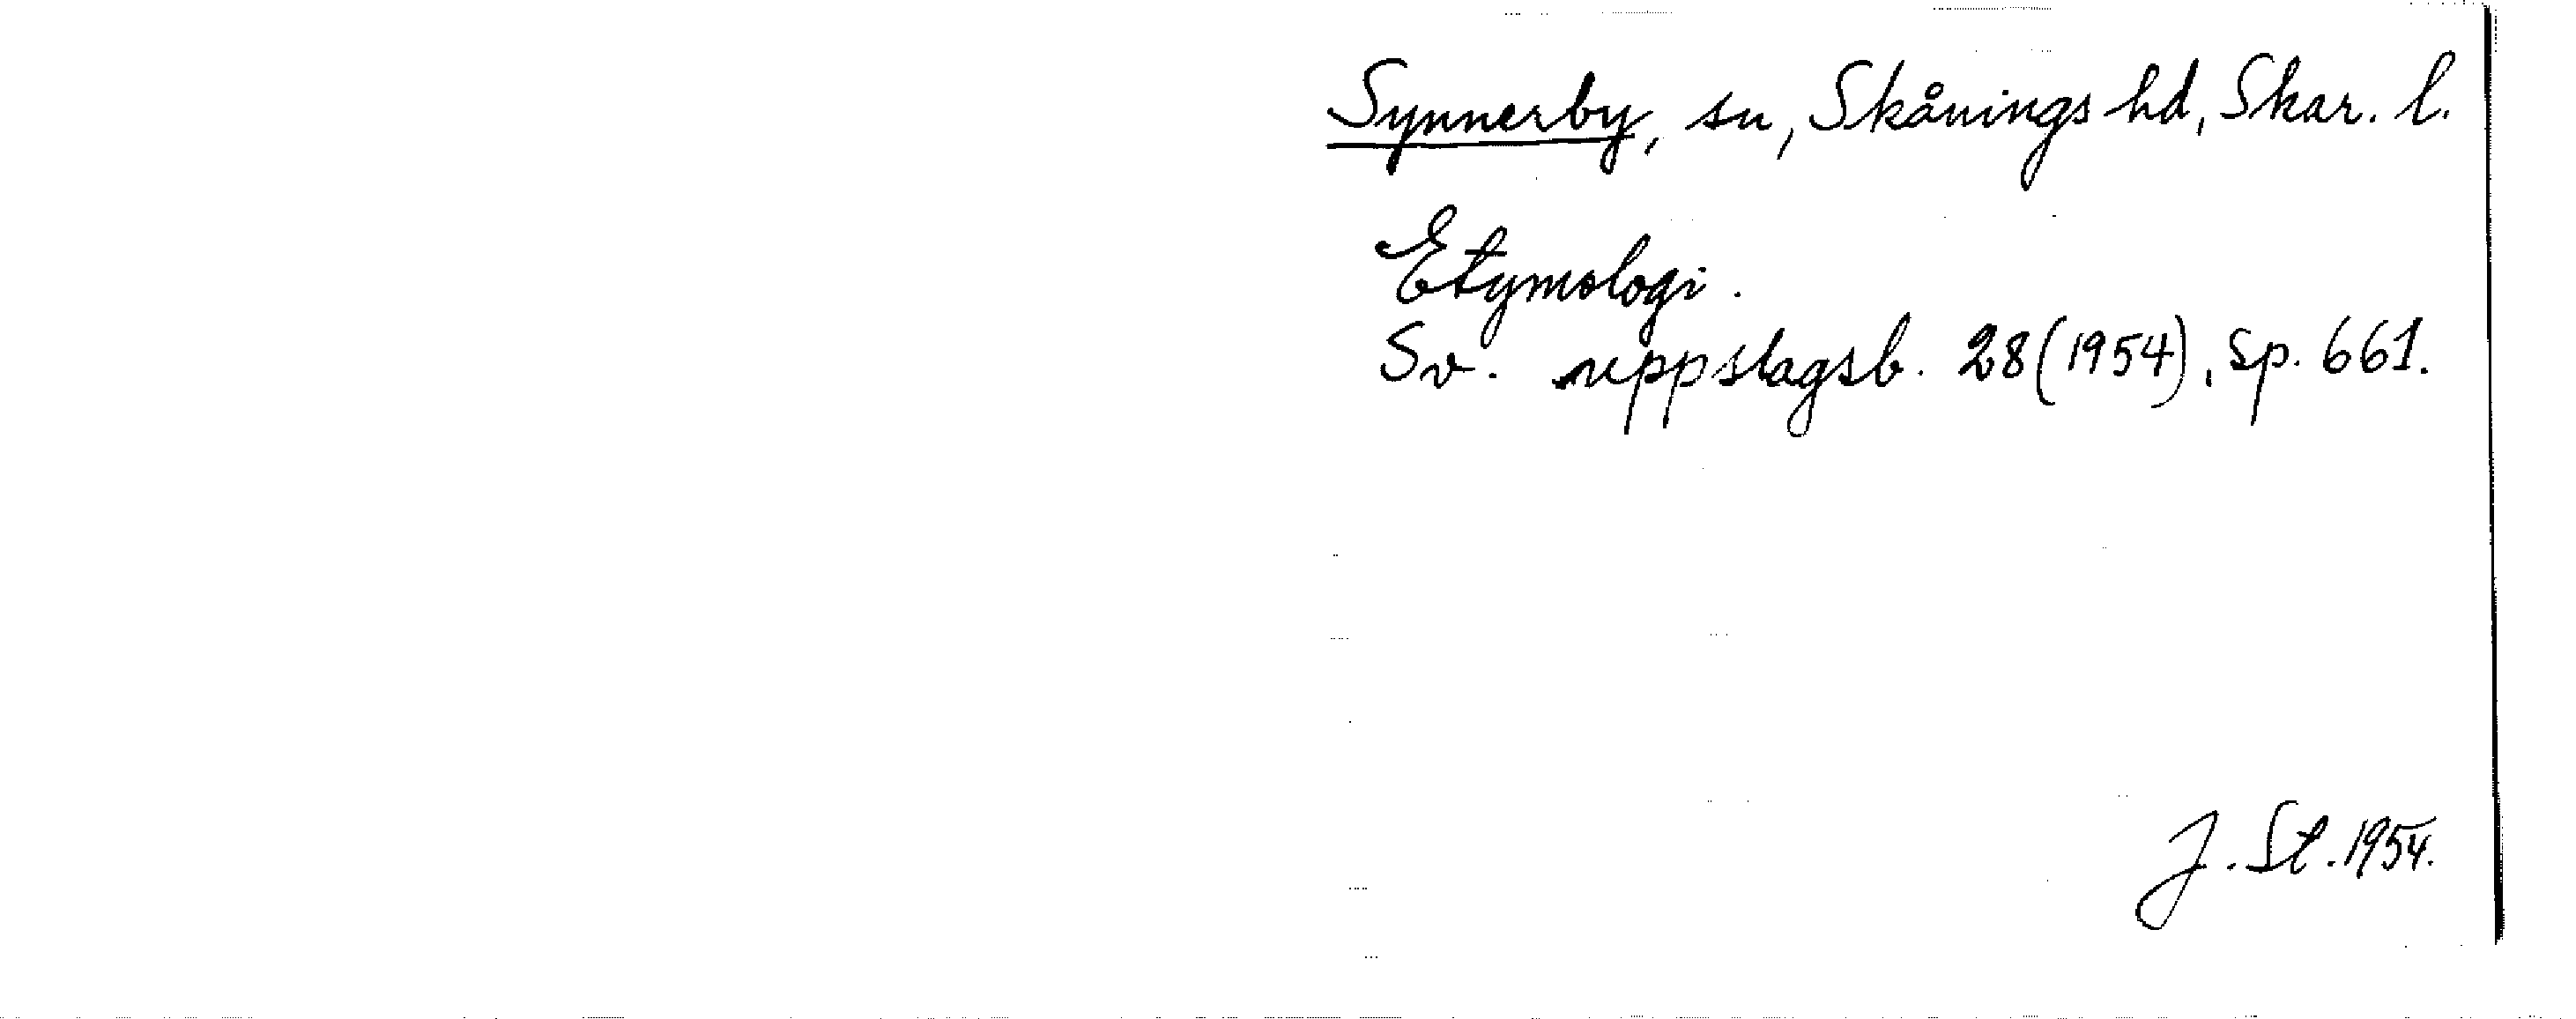 Synnerby, sn, Skånings hd, Skar. l.
Etymologi.
Sv. uppslagsb. 28 (1954), sp. 661.
J. St. 1954.